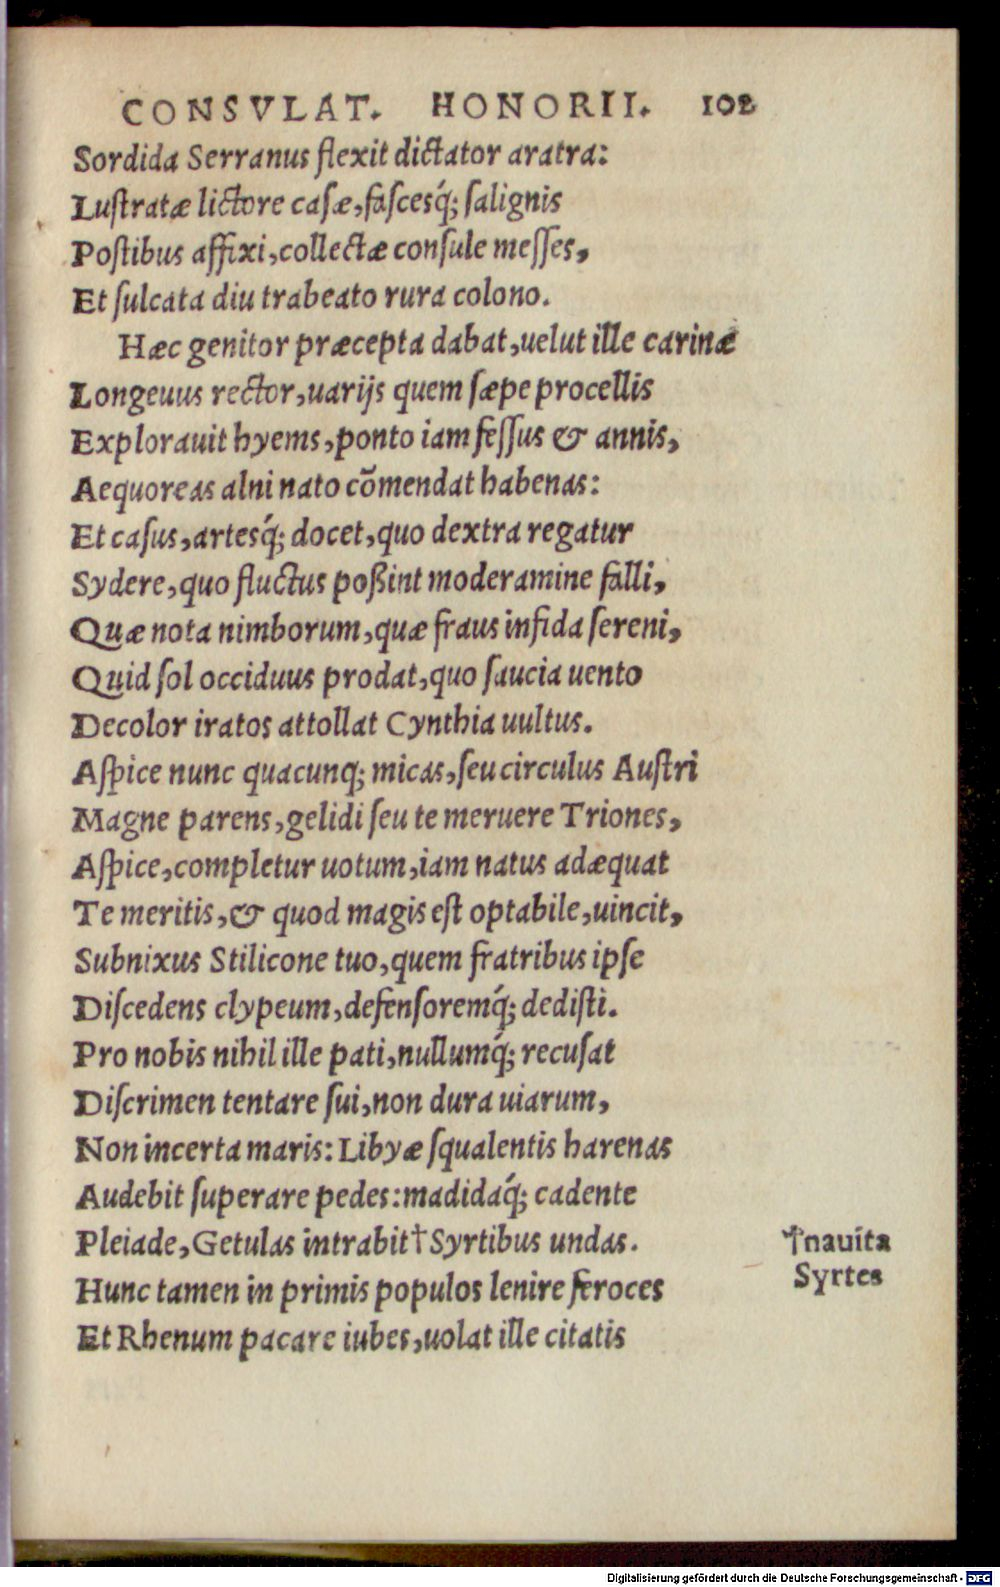 CONSVLAT. HONORII. 102
Sordida Serranus flexit dictator aratra:
Luſtratæ lictore caſæ, faſcesq́; ſalignis
Poſtibus affixi, collectæ conſule meſſes,
Et ſulcata diu trabeato rura colono.
Hæc genitor præcepta dabat, uelut ille carinæ
Longeuus rector, uarijs quem ſæpe procellis
Explorauit hyems, ponto iam feſſus & annis,
Aequoreas alni nato cõmendat habenas:
Et caſus, artesq́; docet, quo dextra regatur
Sydere, quo fluctus poßint moderamine falli,
Quæ nota nimborum, quæ fraus infida ſereni,
Quid ſol occiduus prodat, quo ſaucia uento
Decolor iratos attollat Cynthia uultus.
Aſpice nunc quacunq; micas, ſeu circulus Auſtri
Magne parens, gelidi ſeu te meruere Triones,
Aſpice, completur uotum, iam natus adæquat
Te meritis, & quod magis eſt optabile, uincit,
Subnixus Stilicone tuo, quem fratribus ipſe
Diſcedens clypeum, defenſoremq́; dediſti.
Pro nobis nihil ille pati, nullumq́; recuſat
Diſcrimen tentare ſui, non dura uiarum,
Non incerta maris: Libyæ ſqualentis harenas
Audebit ſuperare pedes: madidaq́; cadente
Pleiade, Getulas intrabit † Syrtibus undas.
Hunc tamen in primis populos lenire feroces
Et Rhenum pacare iubes, uolat ille citatis
†nauita
Syrtes
Digitalisierung gefördert durch die Deutsche Forschungsgemeinschaft - DFG